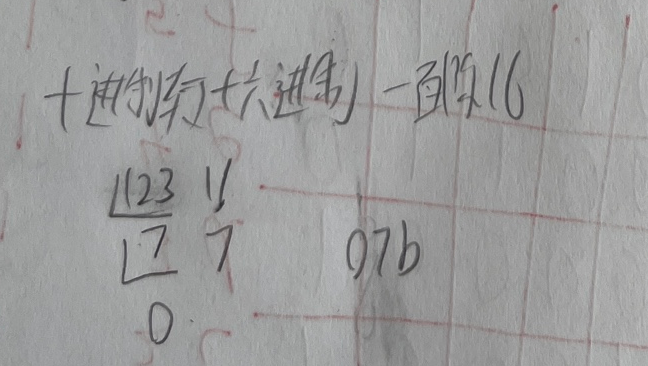 十进制转十六进制 一直除16
123 11
7 7 07b
0